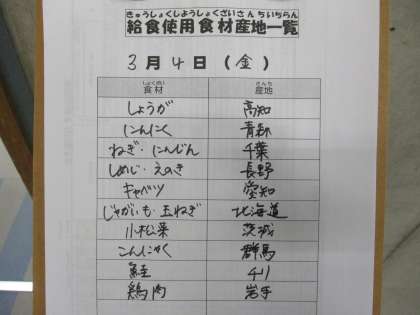 きゅうしょくしようしょくざいさんちいちらん
給食使用食材産地一覧
3月4日（金）
しょくざい さんち
食材 産地
しょうが 高知
にんにく 青森
ねぎ・にんじん 千葉
しめじ・えのき 長野
キャベツ 愛知
じゃがいも・玉ねぎ 北海道
小松菜 茨城
こんにゃく 群馬
鮭 チリ
鶏肉 岩手